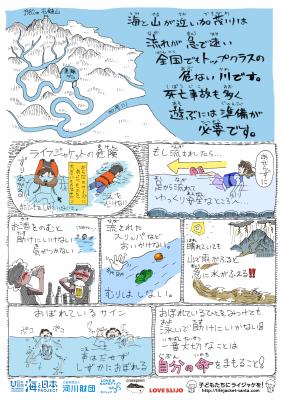 海と山が近い加茂川は
流れが急で速い
全国でもトップクラスの
危ない川です。
死亡事故も多く
遊ぶには準備が
必要です。
ライフジャケットの危険
もし流されたら…
足から流れて
ゆっくり安全なところへ
お酒をのむと
助けにいけない
気がつかない
流された
スリッパなど
おいかけない。
むりはしない。
晴れていても
山で雨がふると
急に水がふえる!!
おぼれているサイン
声はださず
しずかにおぼれる
おぼれているひとをみつけても
泳いで助けにいかない!
一番大切なことは
自分の命をまもること!
海と日本
PROJECT
河川財団
LOVE SAIJO
子どもたちにライジャケを!